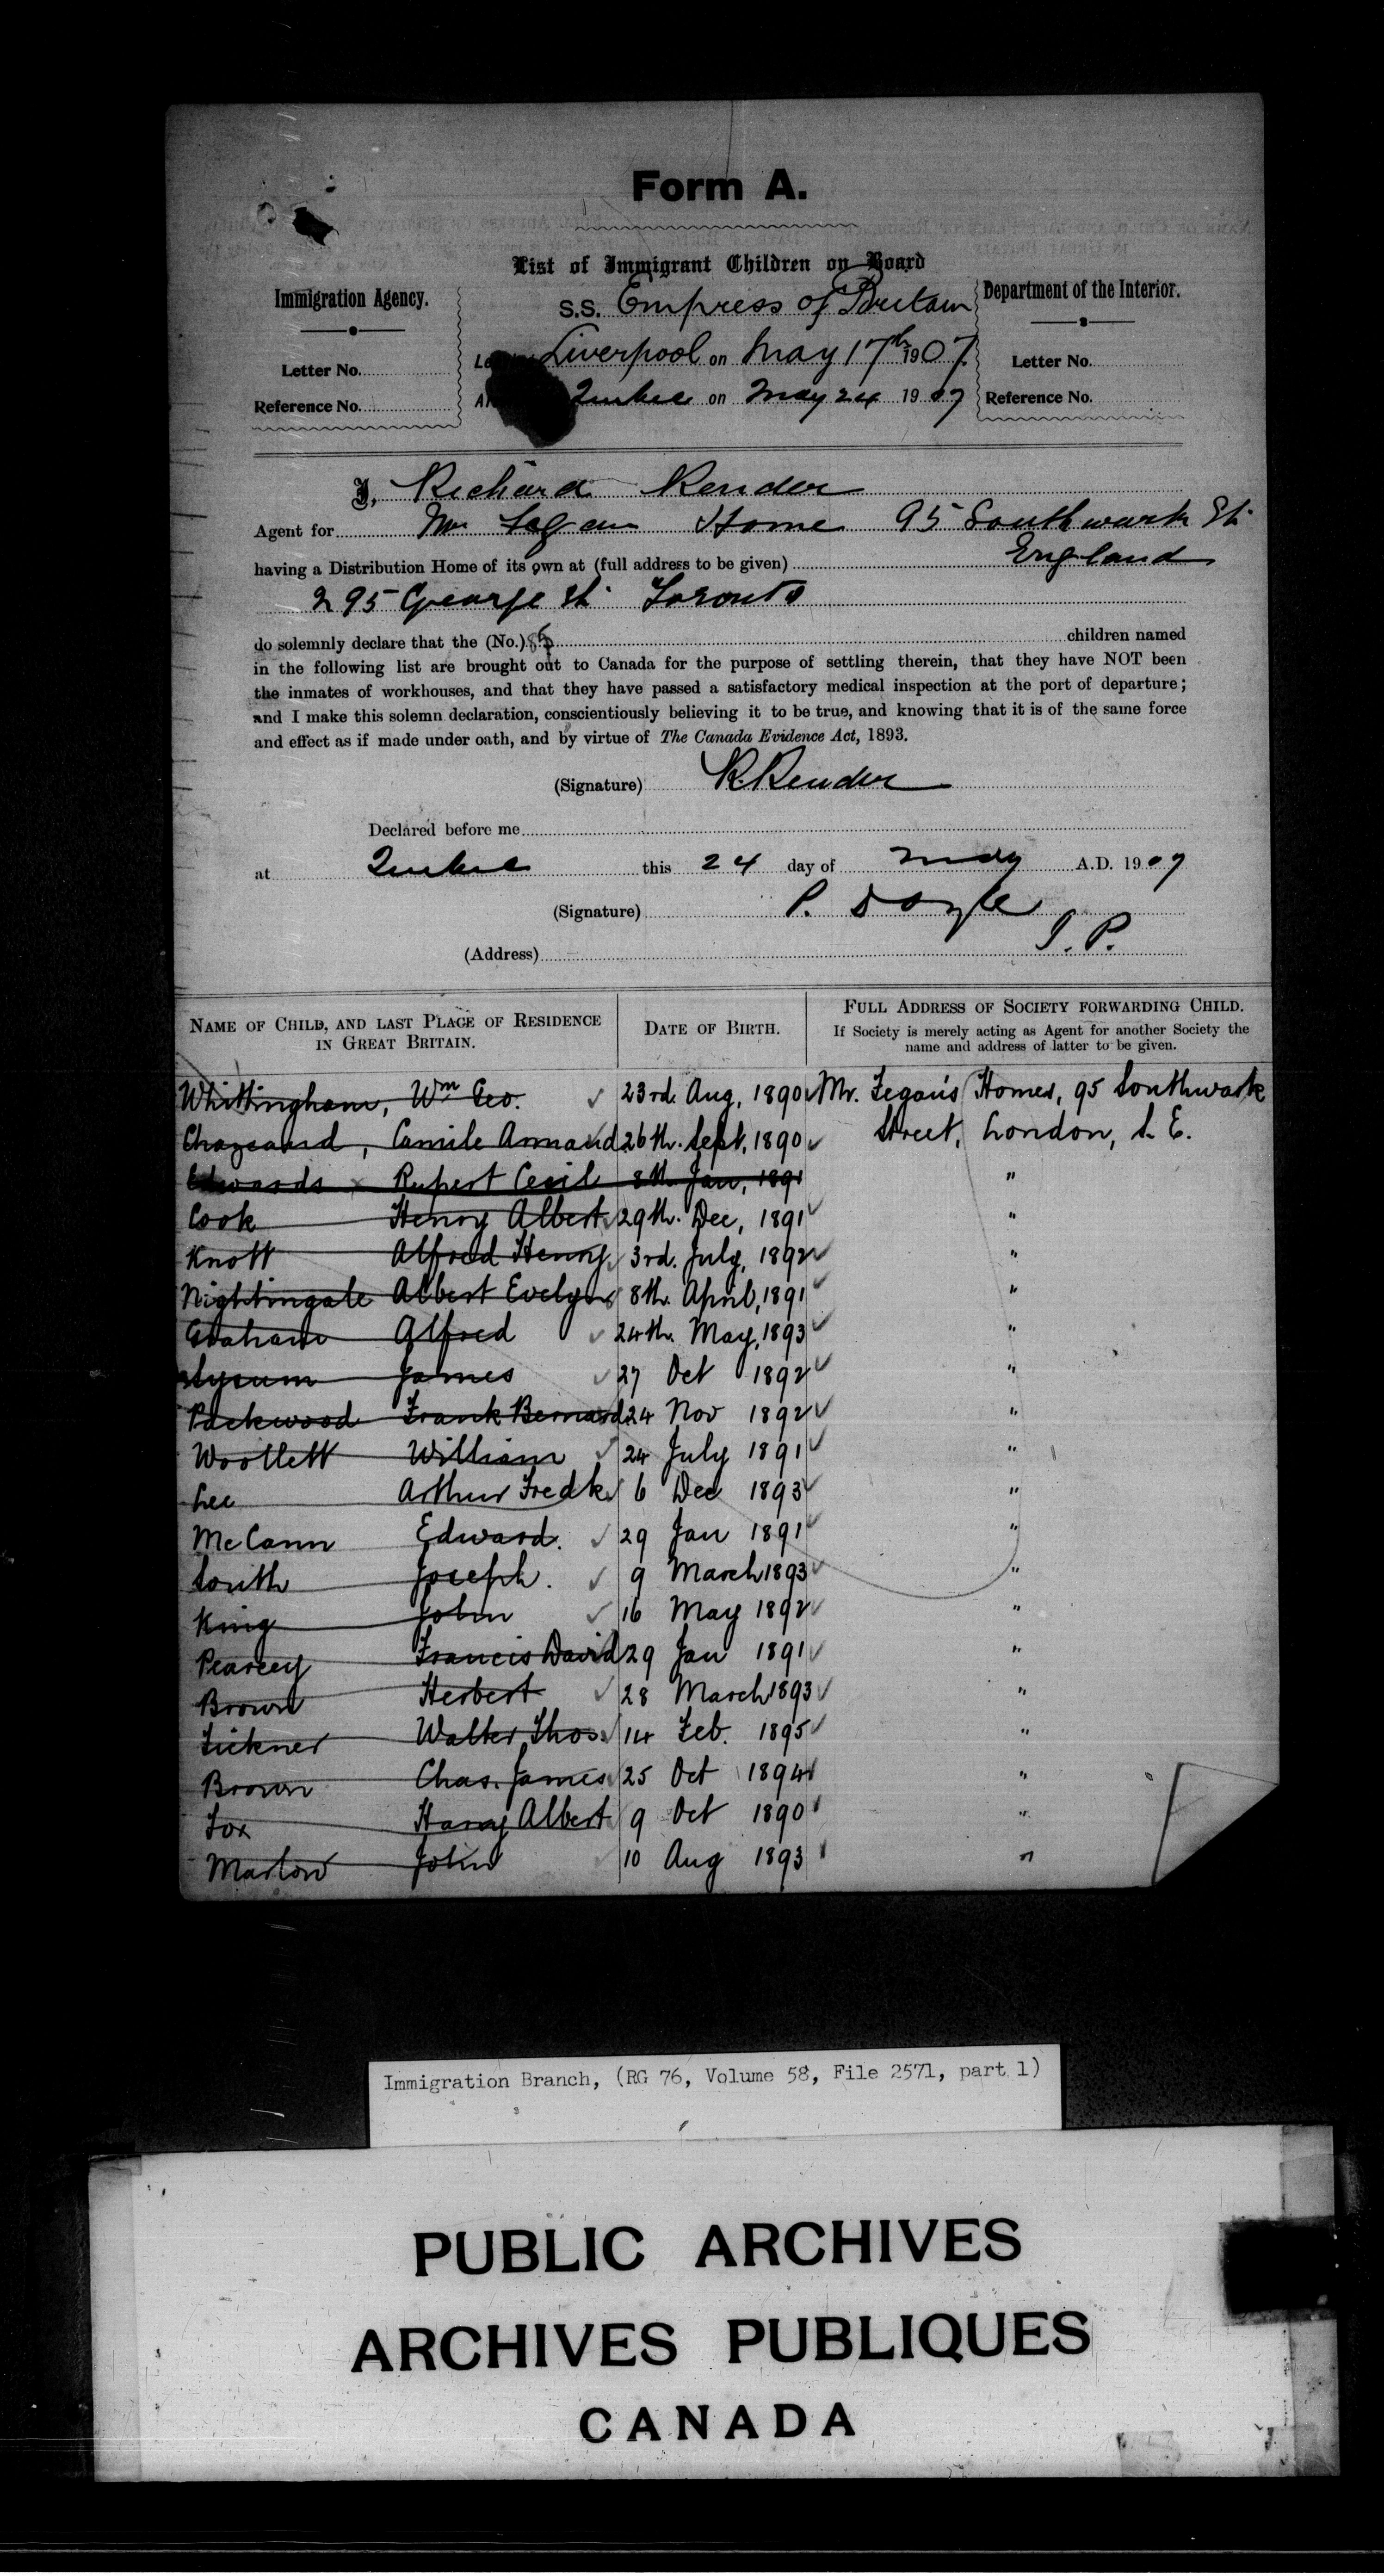 Form A.
List of Immigrant Children on Board
Immigration Agency.
S.S. Empress of Britain
Department of the Interior.
Letter No.
Liverpool on May 17th 1907.
Letter No.
Reference No.
Quebec on May 24 1907
Reference No.
I, Richard Render
Agent for Mr Fegan Home 95 Southwark St.
having a Distribution Home of its own at (full address to be given) England
295 George St. Toronto
do solemnly declare that the (No.) children named
in the following list are brought out to Canada for the purpose of settling therein, that they have NOT been
the inmates of workhouses, and that they have passed a satisfactory medical inspection at the port of departure;
and I make this solemn declaration, conscientiously believing it to be true, and knowing that it is of the same force
and effect as if made under oath, and by virtue of The Canada Evidence Act, 1893.
(Signature) R. Render
Declared before me
at Quebec this 24 day of May A.D. 1907
(Signature) P. Doyle
J. P.
(Address)
NAME OF CHILD, AND LAST PLACE OF RESIDENCE IN GREAT BRITAIN.
DATE OF BIRTH.
FULL ADDRESS OF SOCIETY FORWARDING CHILD.
If Society is merely acting as Agent for another Society the
name and address of latter to be given.
Whittingham, Wm Geo. 23rd. Aug, 1890 Mr. Fegan's Homes, 95 Southwark
Chazeaud, Camile Armand 26th. Sept, 1890 Street, London, S. E.
Edwards Rupert Cecil 8th Jan, 1891 "
Cook Henry Albert 29th. Dec, 1891 "
Knott Alfred Henry 3rd. July, 1892 "
Nightingale Albert Evelyn 8th. April, 1891 "
Graham Alfred 24th. May, 1893 "
James 27 Oct 1892 "
Packwood Frank Bernard 24 Nov 1892 "
Woollett William 24 July 1891 "
Lee Arthur Fredk 6 Dec 1893 "
McCann Edward. 29 Jan 1891 "
South Joseph. 9 March 1893 "
King John 16 May 1892 "
Pearcey Francis David 29 Jan 1891 "
Brown Herbert 28 March 1893 "
Fickner Walter Thos. 14 Feb. 1895 "
Brown Chas. James 25 Oct 1894 "
Fox Harry Albert 9 Oct 1890 "
Marlow John 10 Aug 1893 "
Immigration Branch, (RG 76, Volume 58, File 2571, part 1)
PUBLIC ARCHIVES
ARCHIVES PUBLIQUES
CANADA